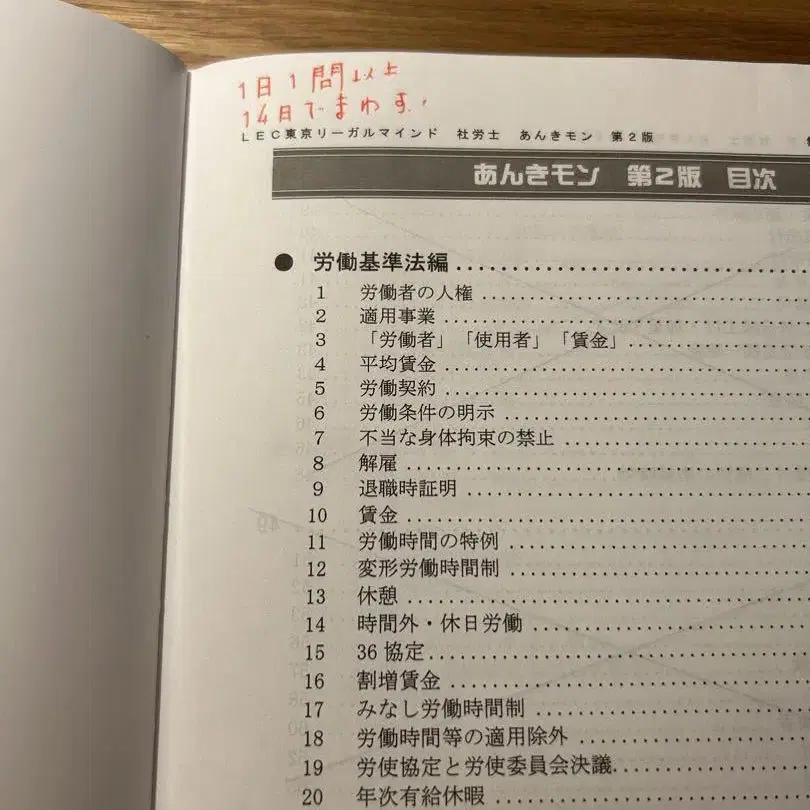 1日1問以上
14日でまわす!
LEC東京リーガルマインド 社労士 あんきモン 第2版
あんきモン 第2版 目次
● 労働基準法編
1 労働者の人権
2 適用事業
3 「労働者」「使用者」「賃金」
4 平均賃金
5 労働契約
6 労働条件の明示
7 不当な身体拘束の禁止
8 解雇
9 退職時証明
10 賃金
11 労働時間の特例
12 変形労働時間制
13 休憩
14 時間外・休日労働
15 36協定
16 割増賃金
17 みなし労働時間制
18 労働時間等の適用除外
19 労使協定と労使委員会決議
20 年次有給休暇